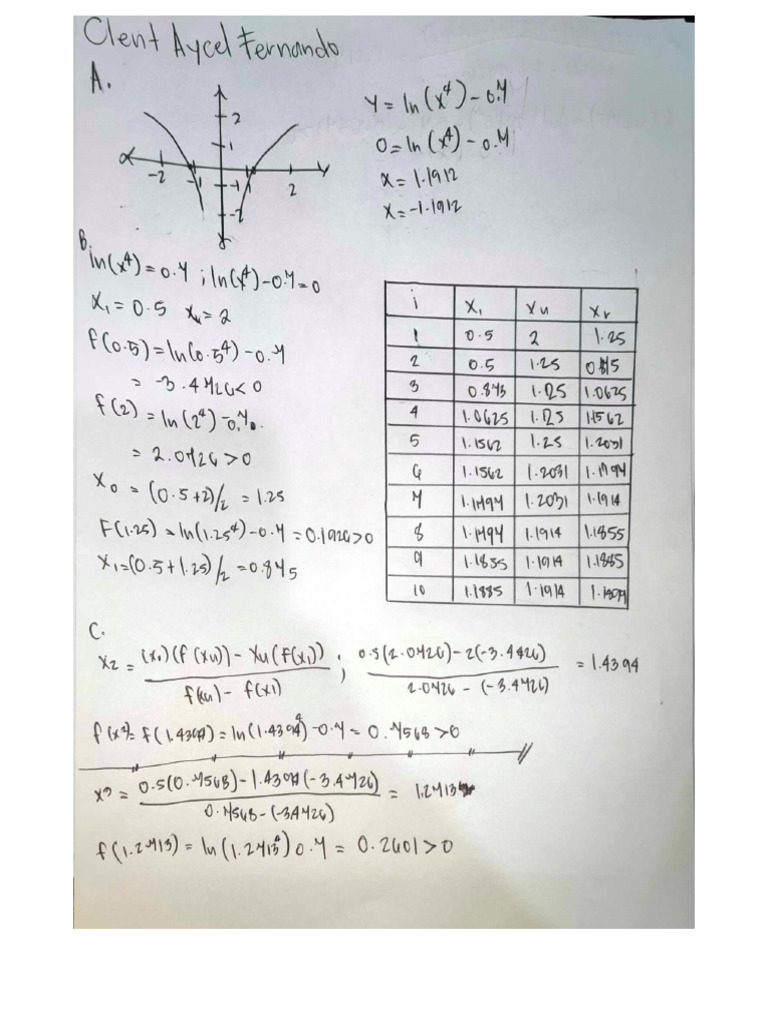 Clent Aycel Fernando
A.
2
1
-2
-1
-1
2
-2
x
y
Y = ln(x⁴) - 0.7
0 = ln(x⁴) - 0.7
x = 1.1912
x = -1.1912
B.
ln(x⁴) = 0.7 ; ln(x⁴) - 0.7 = 0
x₁ = 0.5 xᵤ = 2
f(0.5) = ln(0.5⁴) - 0.7
= -3.4726 < 0
f(2) = ln(2⁴) - 0.7
= 2.0726 > 0
x₀ = (0.5+2)/2 = 1.25
F(1.25) = ln(1.25⁴) - 0.7 = 0.1926 > 0
x₁ = (0.5+1.25)/2 = 0.875
i x₁ xᵤ xᵣ
1 0.5 2 1.25
2 0.5 1.25 0.875
3 0.875 1.25 1.0625
4 1.0625 1.25 1.1562
5 1.1562 1.25 1.2031
6 1.1562 1.2031 1.1794
7 1.1794 1.2031 1.1914
8 1.1794 1.1914 1.1855
9 1.1855 1.1914 1.1885
10 1.1885 1.1914
C.
x₂ = (x₁)(f(xᵤ)) - xᵤ(f(x₁)) / f(xᵤ) - f(x₁) ; 0.5(2.0726) - 2(-3.4726) / 2.0726 - (-3.4726) = 1.4394
f(x²) = f(1.4394) = ln(1.4394⁴) - 0.7 = 0.7568 > 0
x³ = 0.5(0.7568) - 1.4394(-3.4726) / 0.7568 - (-3.4726) = 1.2713
f(1.2713) = ln(1.2713⁴) 0.7 = 0.2601 > 0